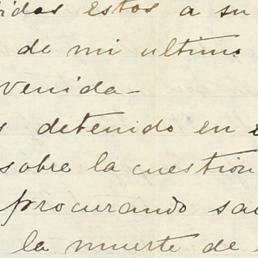 idas estos a su
de mi ultimo
venida-
s detenido en e
sobre la cuestion
procurando sa
la muerte de